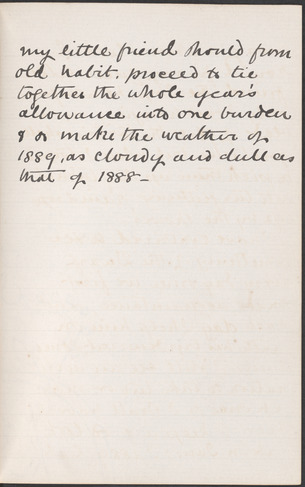 my little friend should from
old habit, proceed to tie
together the whole year's
allowance into one burden
& so make the weather of
1889, as cloudy and dull as
that of 1888-